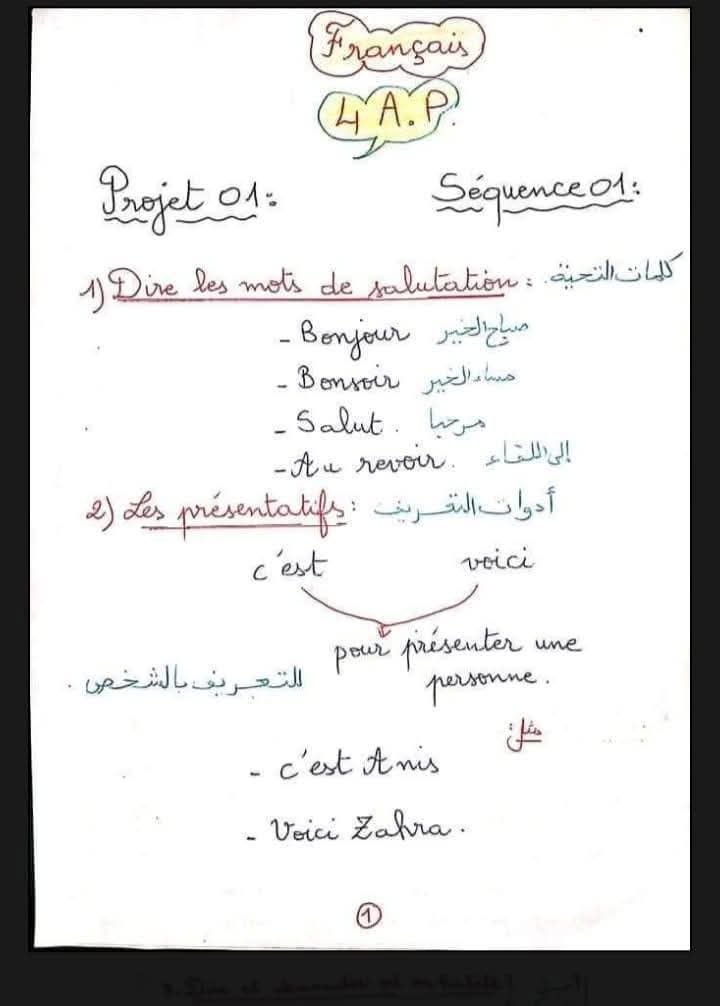 Français
4 A.P.
Projet 01: Séquence 01:
1) Dire les mots de salutation : كلمات التحية
- Bonjour صباح الخير
- Bonsoir مساء الخير
- Salut. مرحبا
- Au revoir. إلى اللقاء
2) Les présentatifs : أدوات التعريف
c'est voici
pour présenter une
personne. التعريف بالشخص.
مثل:
- c'est Anis
- Voici Zahra.
1